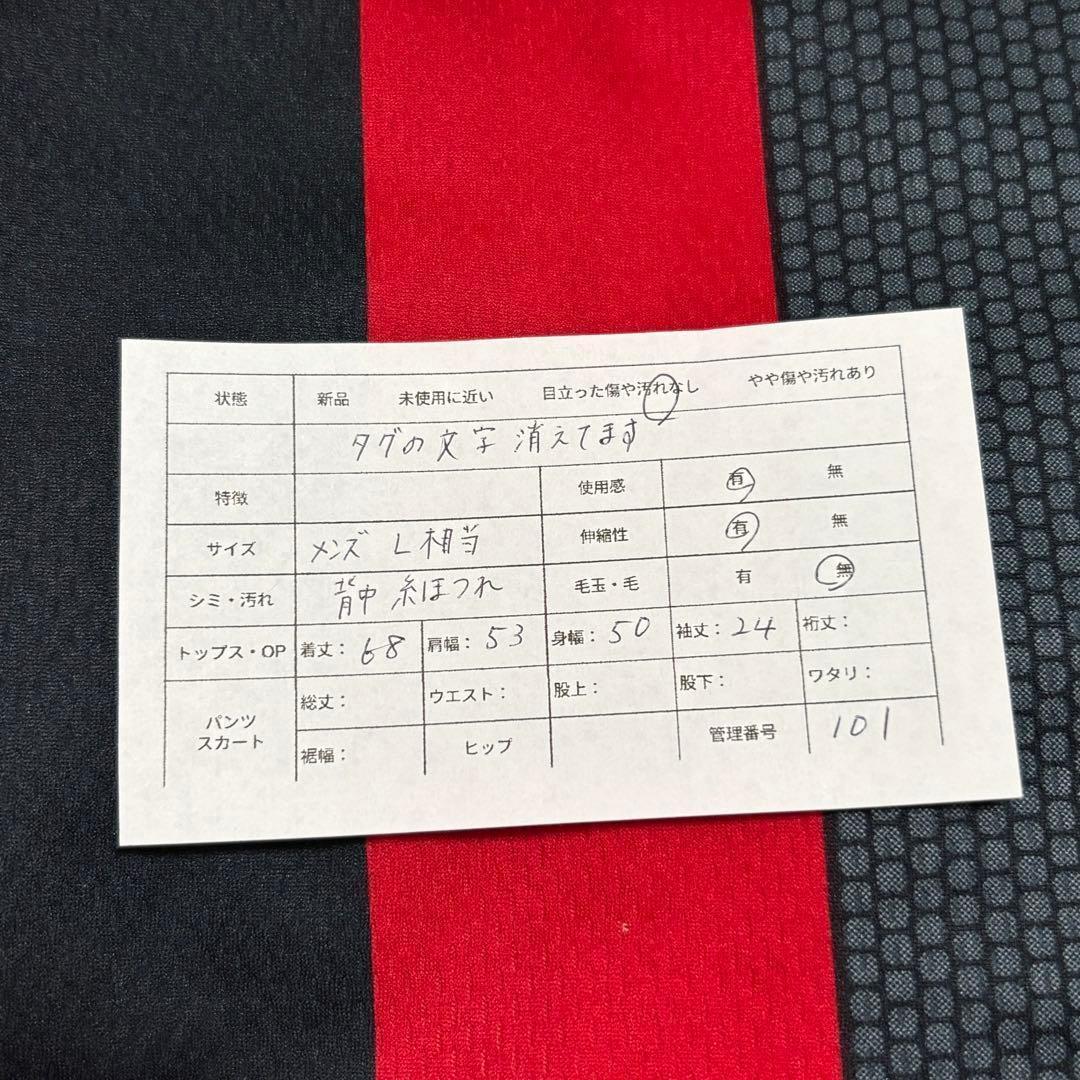 状態 新品 未使用に近い 目立った傷や汚れなし やや傷や汚れあり
タグの文字 消えてます
特徴 使用感 有 無
サイズ メンズ L相当 伸縮性 有 無
シミ・汚れ 背中 糸ほつれ 毛玉・毛 有 無
トップス・OP 着丈: 68 肩幅: 53 身幅: 50 袖丈: 24 裄丈:
パンツ スカート 総丈: ウエスト: 股上: 股下: ワタリ:
裾幅: ヒップ 管理番号 101